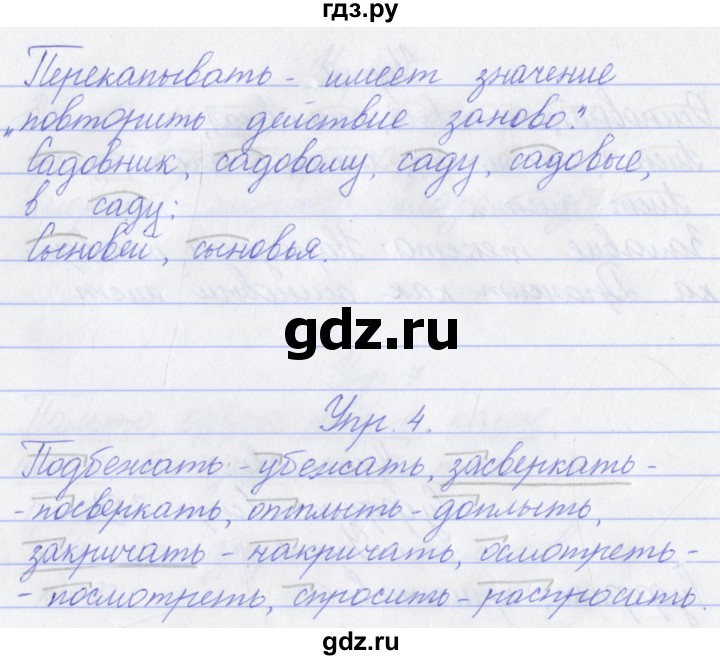 гдз.ру
Перекапывать - имеет значение
„повторить действие заново."
Садовник, садовому, саду, садовые,
в саду;
Сыновей, сыновья.
gdz.ru
Упр. 4.
Подбежать - убежать, засверкать -
- посверкать, отплыть - доплыть,
закричать - накричать, осмотреть -
- посмотреть, спросить - распросить.
gdz.ru